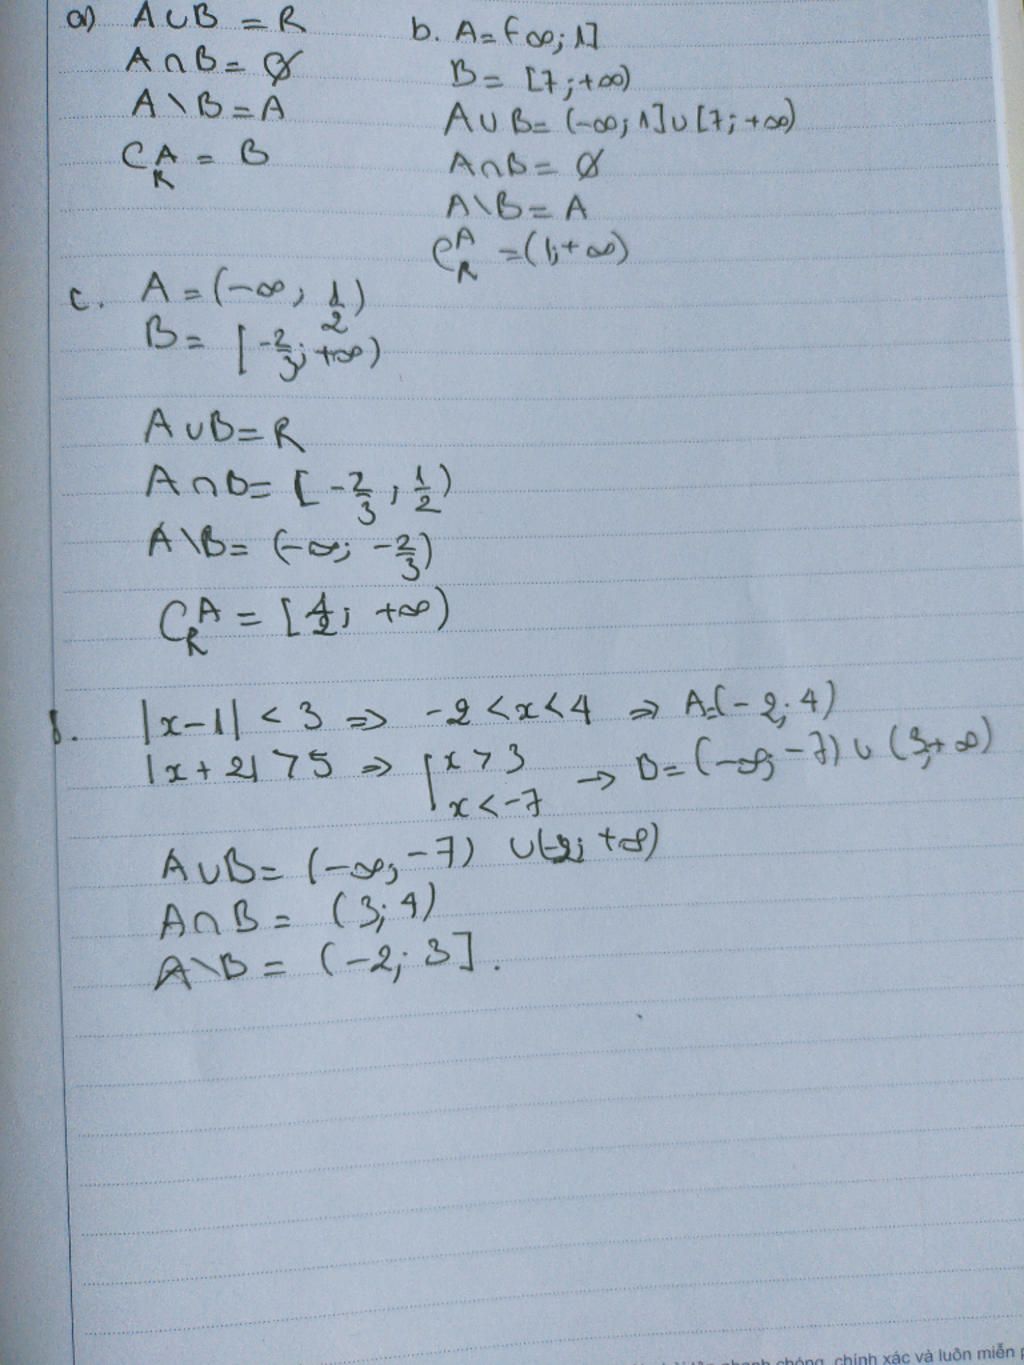 a) A∪B = R
A∩B = ∅
A\B = A
C_R^A = B
b. A = (-∞; 1]
B = [7; +∞)
A∪B = (-∞; 1]∪[7; +∞)
A∩B = ∅
A\B = A
C_R^A = (1; +∞)
c. A = (-∞; 1/2)
B = [-2/3; +∞)
A∪B = R
A∩B = [-2/3; 1/2)
A\B = (-∞; -2/3)
C_R^A = [1/2; +∞)
|x-1| < 3 ⇒ -2 < x < 4 ⇒ A=(-2; 4)
|x+2| > 5 ⇒ [x > 3
x < -7 → B = (-∞; -7) ∪ (3; +∞)
A∪B = (-∞; -7) ∪(-2; +∞)
A∩B = (3; 4)
A\B = (-2; 3].
nhanh chóng, chính xác và luôn miễn